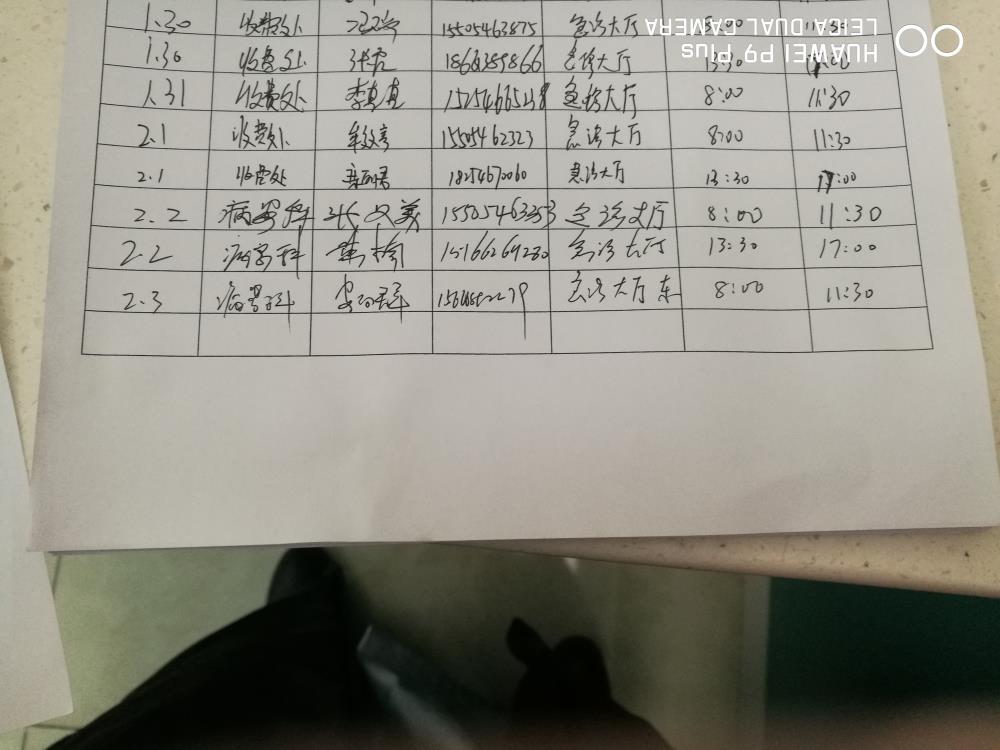 1.30 收费处 15505463875 急诊大厅 8:00 11:30
1.30 收费处 张 18663898866 急诊大厅 13:30 17:00
1.31 收费处 李真真 急诊大厅 8:00 11:30
2.1 收费处 15505462323 急诊大厅 8:00 11:30
2.1 收费处 18254670060 急诊大厅 13:30 17:00
2.2 病案科 张文美 15505463353 急诊大厅 8:00 11:30
2.2 病案科 15166269280 急诊大厅 13:30 17:00
2.3 病案科 急诊大厅东 8:00 11:30
HUAWEI P9 Plus
LEICA DUAL CAMERA